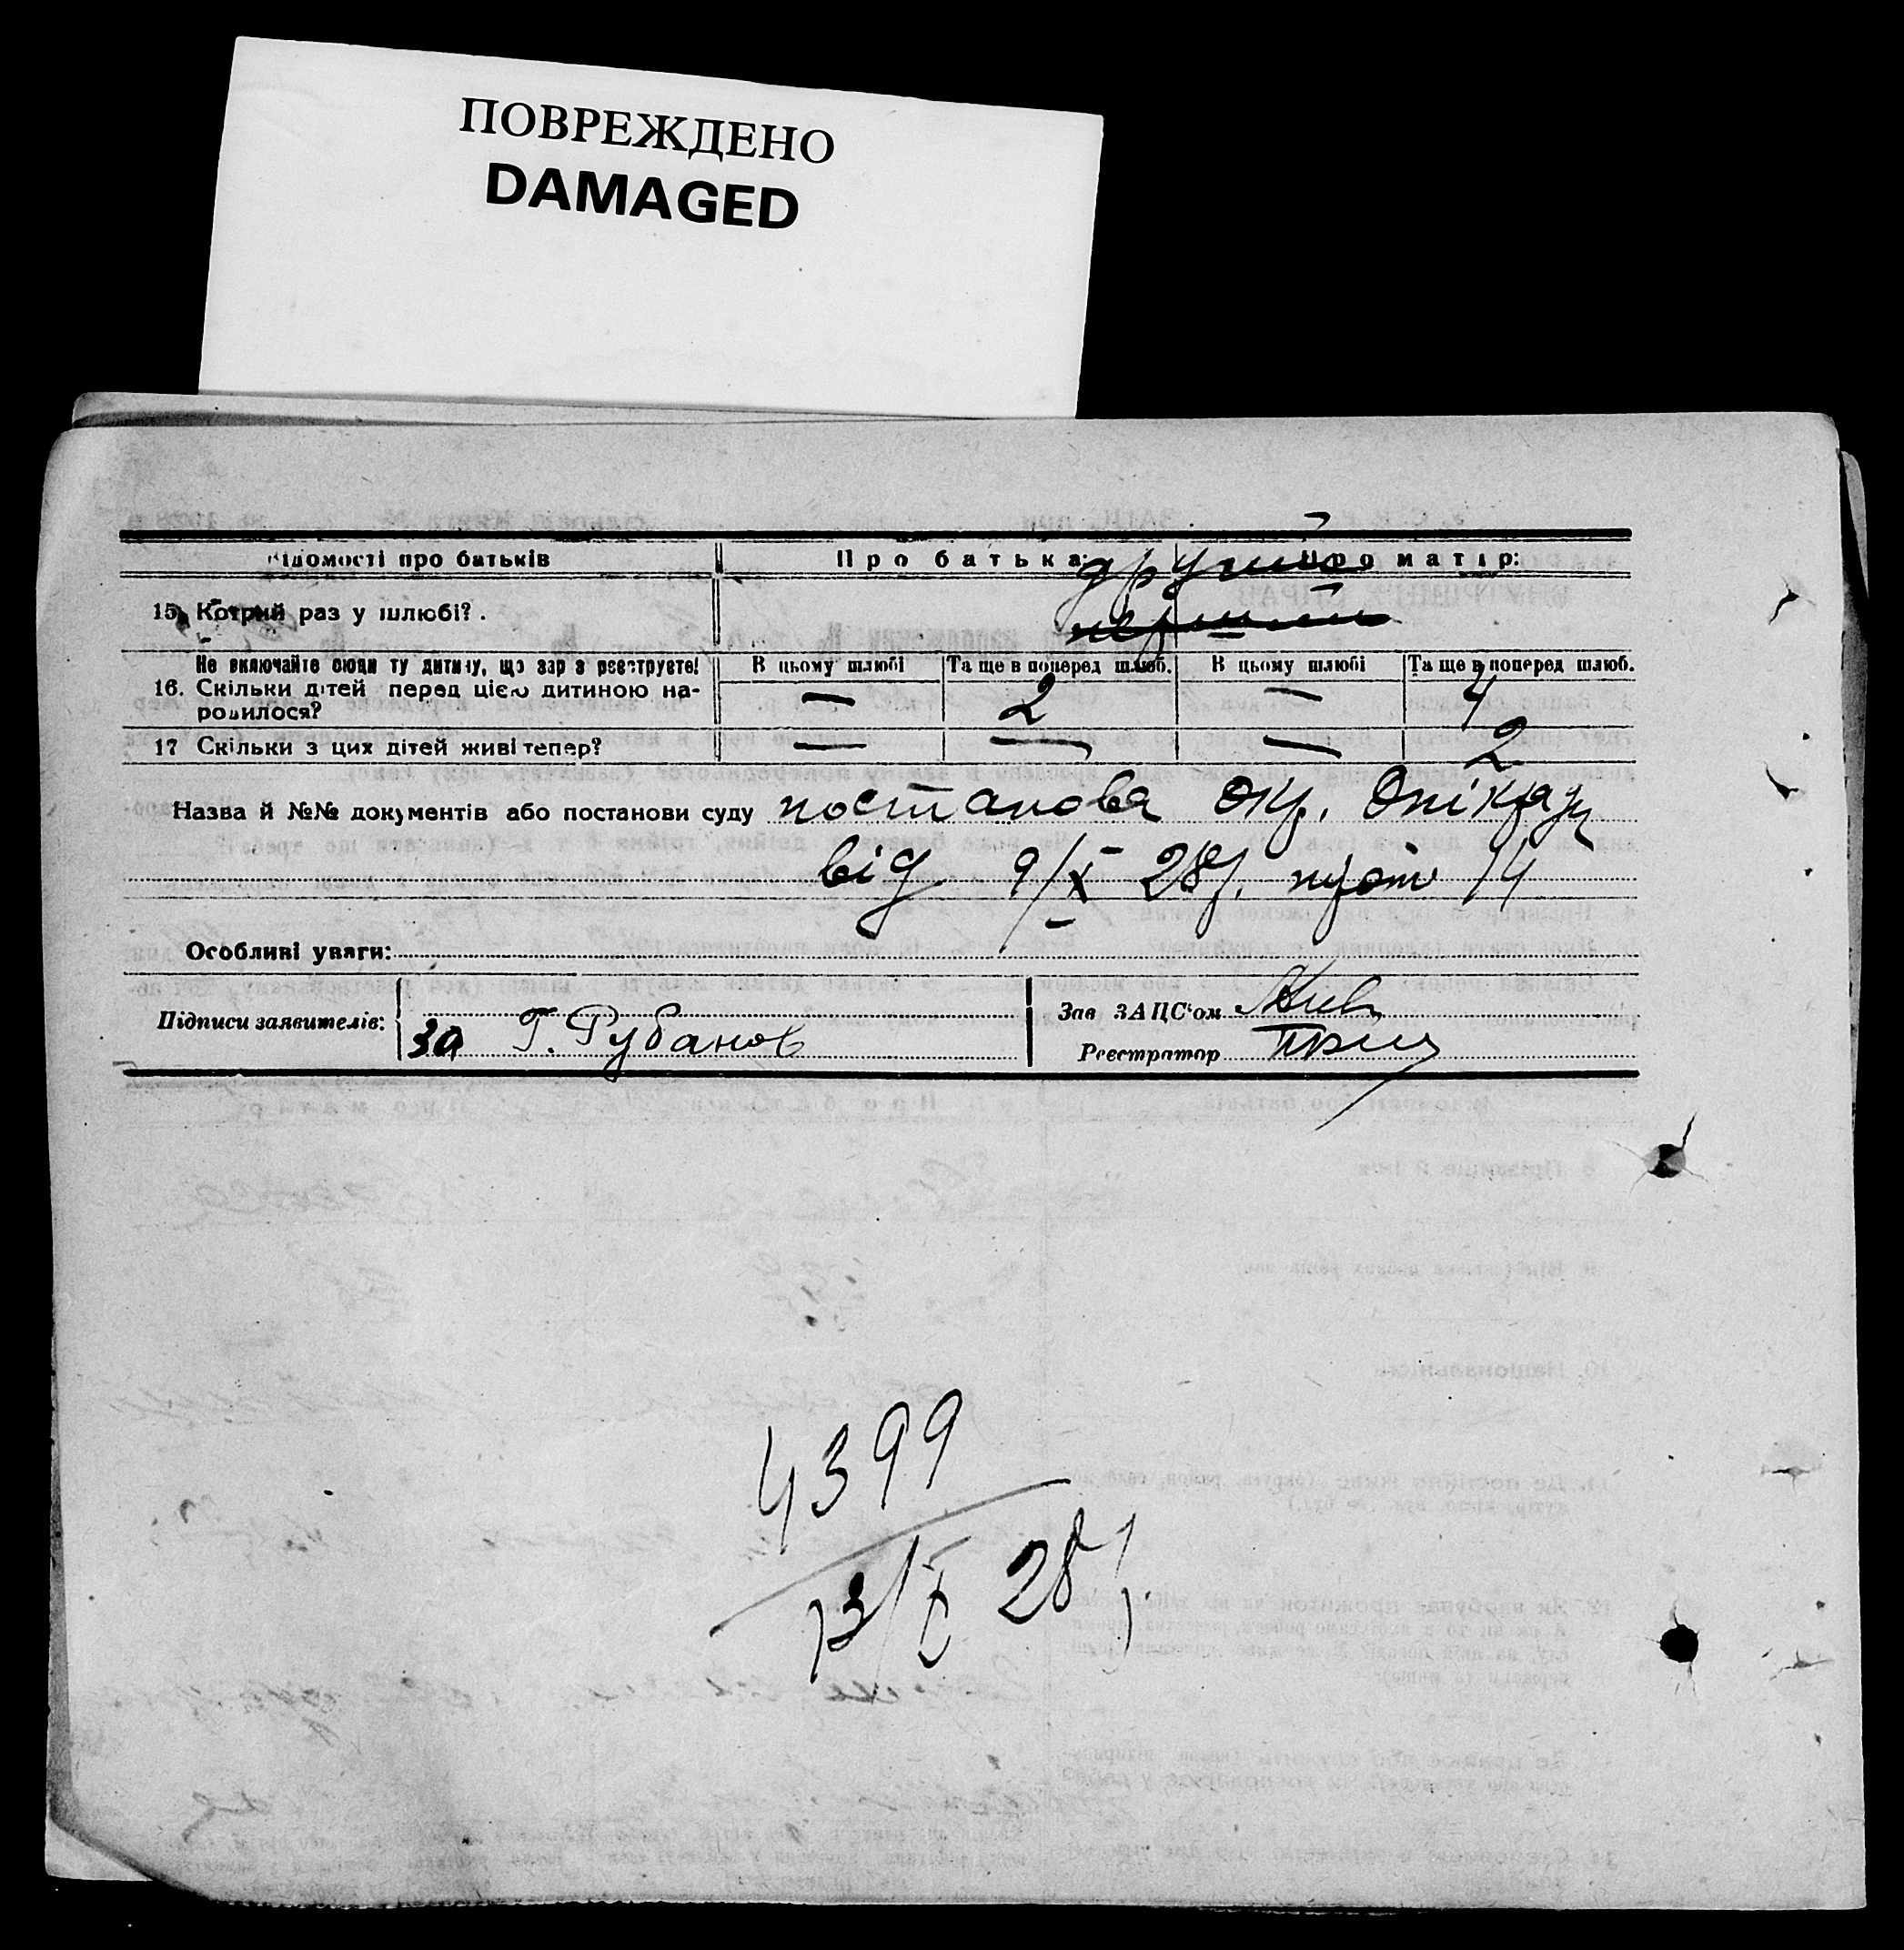 ПОВРЕЖДЕНО
DAMAGED
Відомості про батьків Про батька: Про матір:
другий
15. Котрий раз у шлюбі?. перший
Не включайте сюди ту дитину, що зараз реєструєте! В цьому шлюбі Та ще в поперед шлюб. В цьому шлюбі Та ще в поперед шлюб.
16. Скільки дітей перед цією дитиною на- — 2 — 4
родилося?
17 Скільки з цих дітей живі тепер? — — — 2
Назва й №№ документів або постанови суду постанова окр. Опікради
від 9/X 28р. прот 14
Особливі уваги:
Підписи заявителів: Зав ЗАЦС'ом
за Г. Рубанов Реєстратор
4399
13/X 28р.